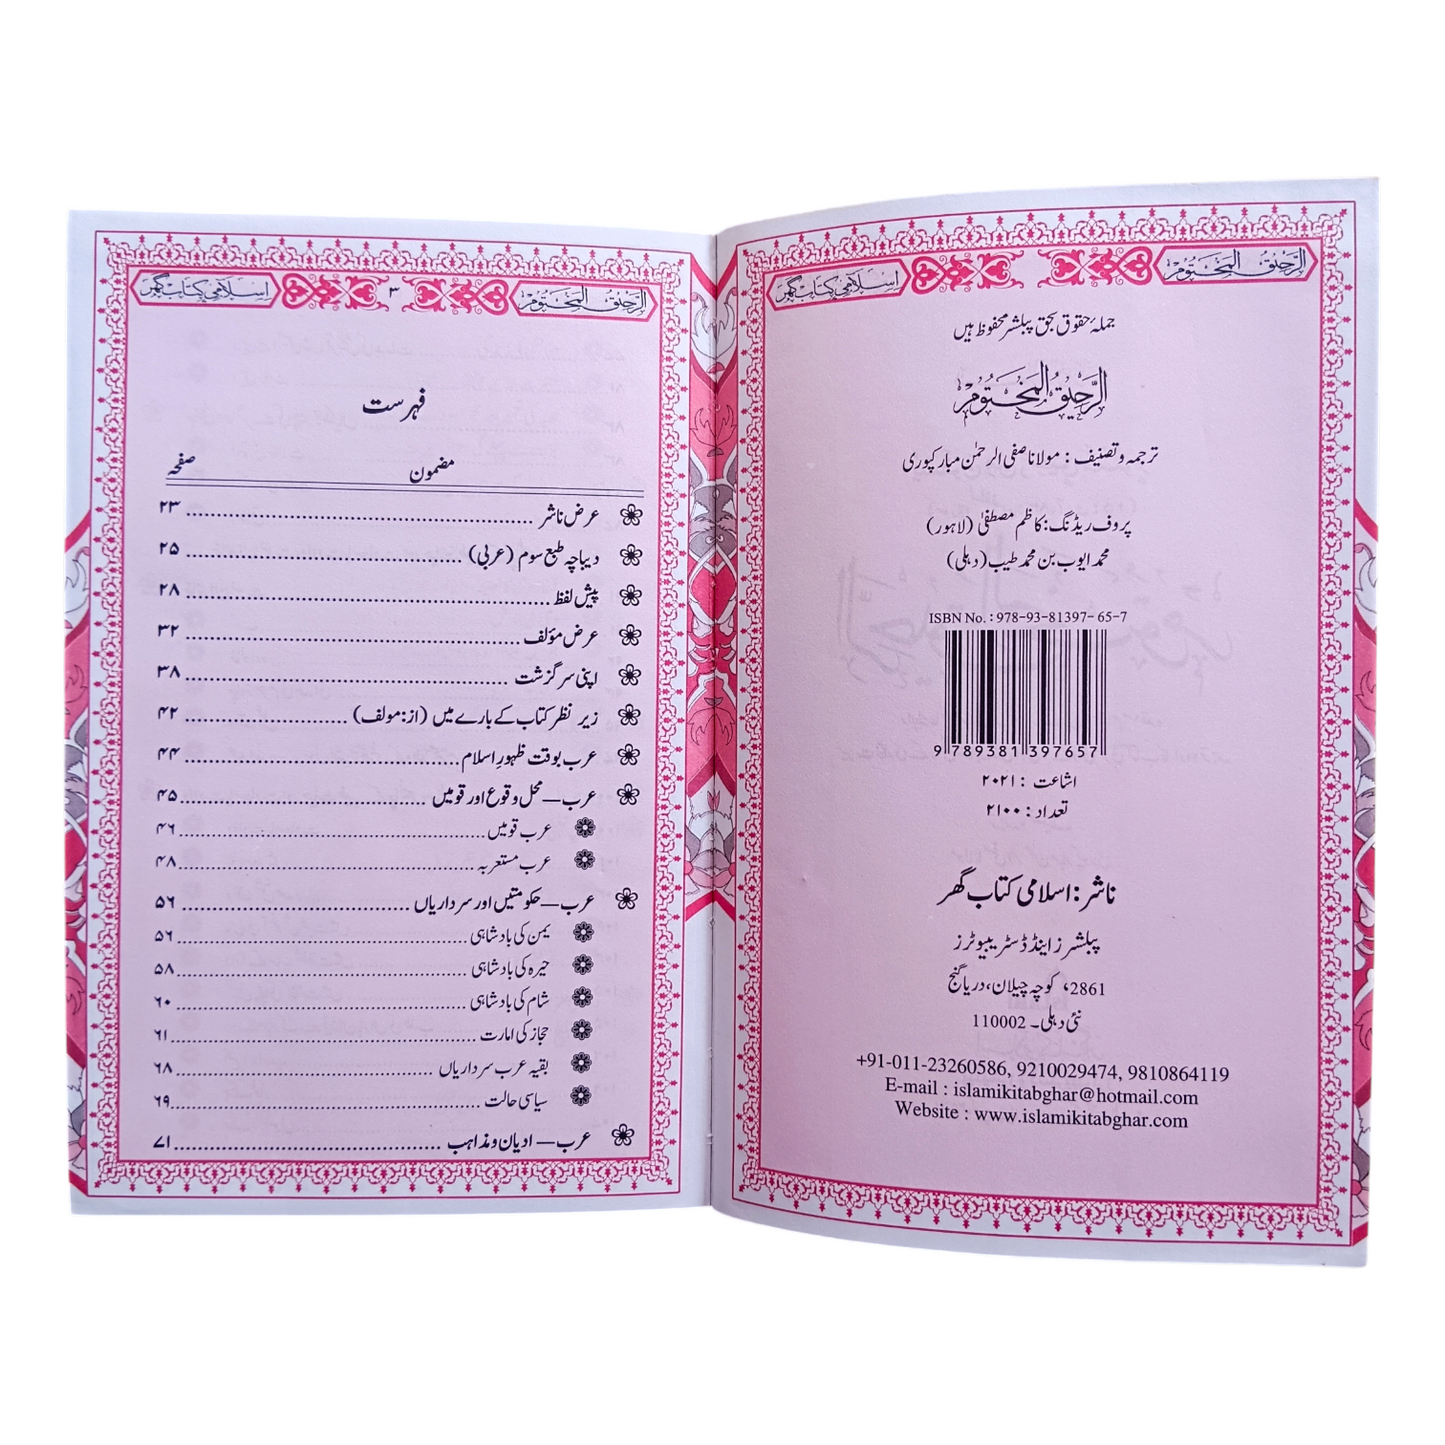 الرحیق المختوم
اسلامی کتاب گھر
جملہ حقوق بحق پبلشر محفوظ ہیں
الرحیق المختوم
ترجمہ و تصنیف : مولانا صفی الرحمٰن مبارکپوری
پروف ریڈنگ : کاظم مصطفیٰ (لاہور)
محمد ایوب بن محمد طیب (دہلی)
ISBN No. : 978-93-81397-65-7
9 789381 397657
اشاعت : ۲۰۲۱
تعداد : ۲۱۰۰
ناشر : اسلامی کتاب گھر
پبلشرز اینڈ ڈسٹریبیوٹرز
2861، کوچہ چیلان، دریا گنج
نئی دہلی۔ 110002
+91-011-23260586, 9210029474, 9810864119
E-mail : islamikitabghar@hotmail.com
Website : www.islamikitabghar.com
الرحیق المختوم ۳ اسلامی کتاب گھر
فہرست
مضمون صفحہ
عرض ناشر ۲۳
دیباچہ طبع سوم (عربی) ۲۵
پیش لفظ ۲۸
عرض مؤلف ۳۲
اپنی سرگزشت ۳۸
زیر نظر کتاب کے بارے میں (از: مولف) ۴۲
عرب بوقت ظہورِ اسلام ۴۴
عرب — محل وقوع اور قومیں ۴۵
عرب قومیں ۴۶
عرب مستعربہ ۴۸
عرب — حکومتیں اور سرداریاں ۵۶
یمن کی بادشاہی ۵۶
حیرہ کی بادشاہی ۵۸
شام کی بادشاہی ۶۰
حجاز کی امارت ۶۱
بقیہ عرب سرداریاں ۶۸
سیاسی حالت ۶۹
عرب — ادیان و مذاہب ۷۱